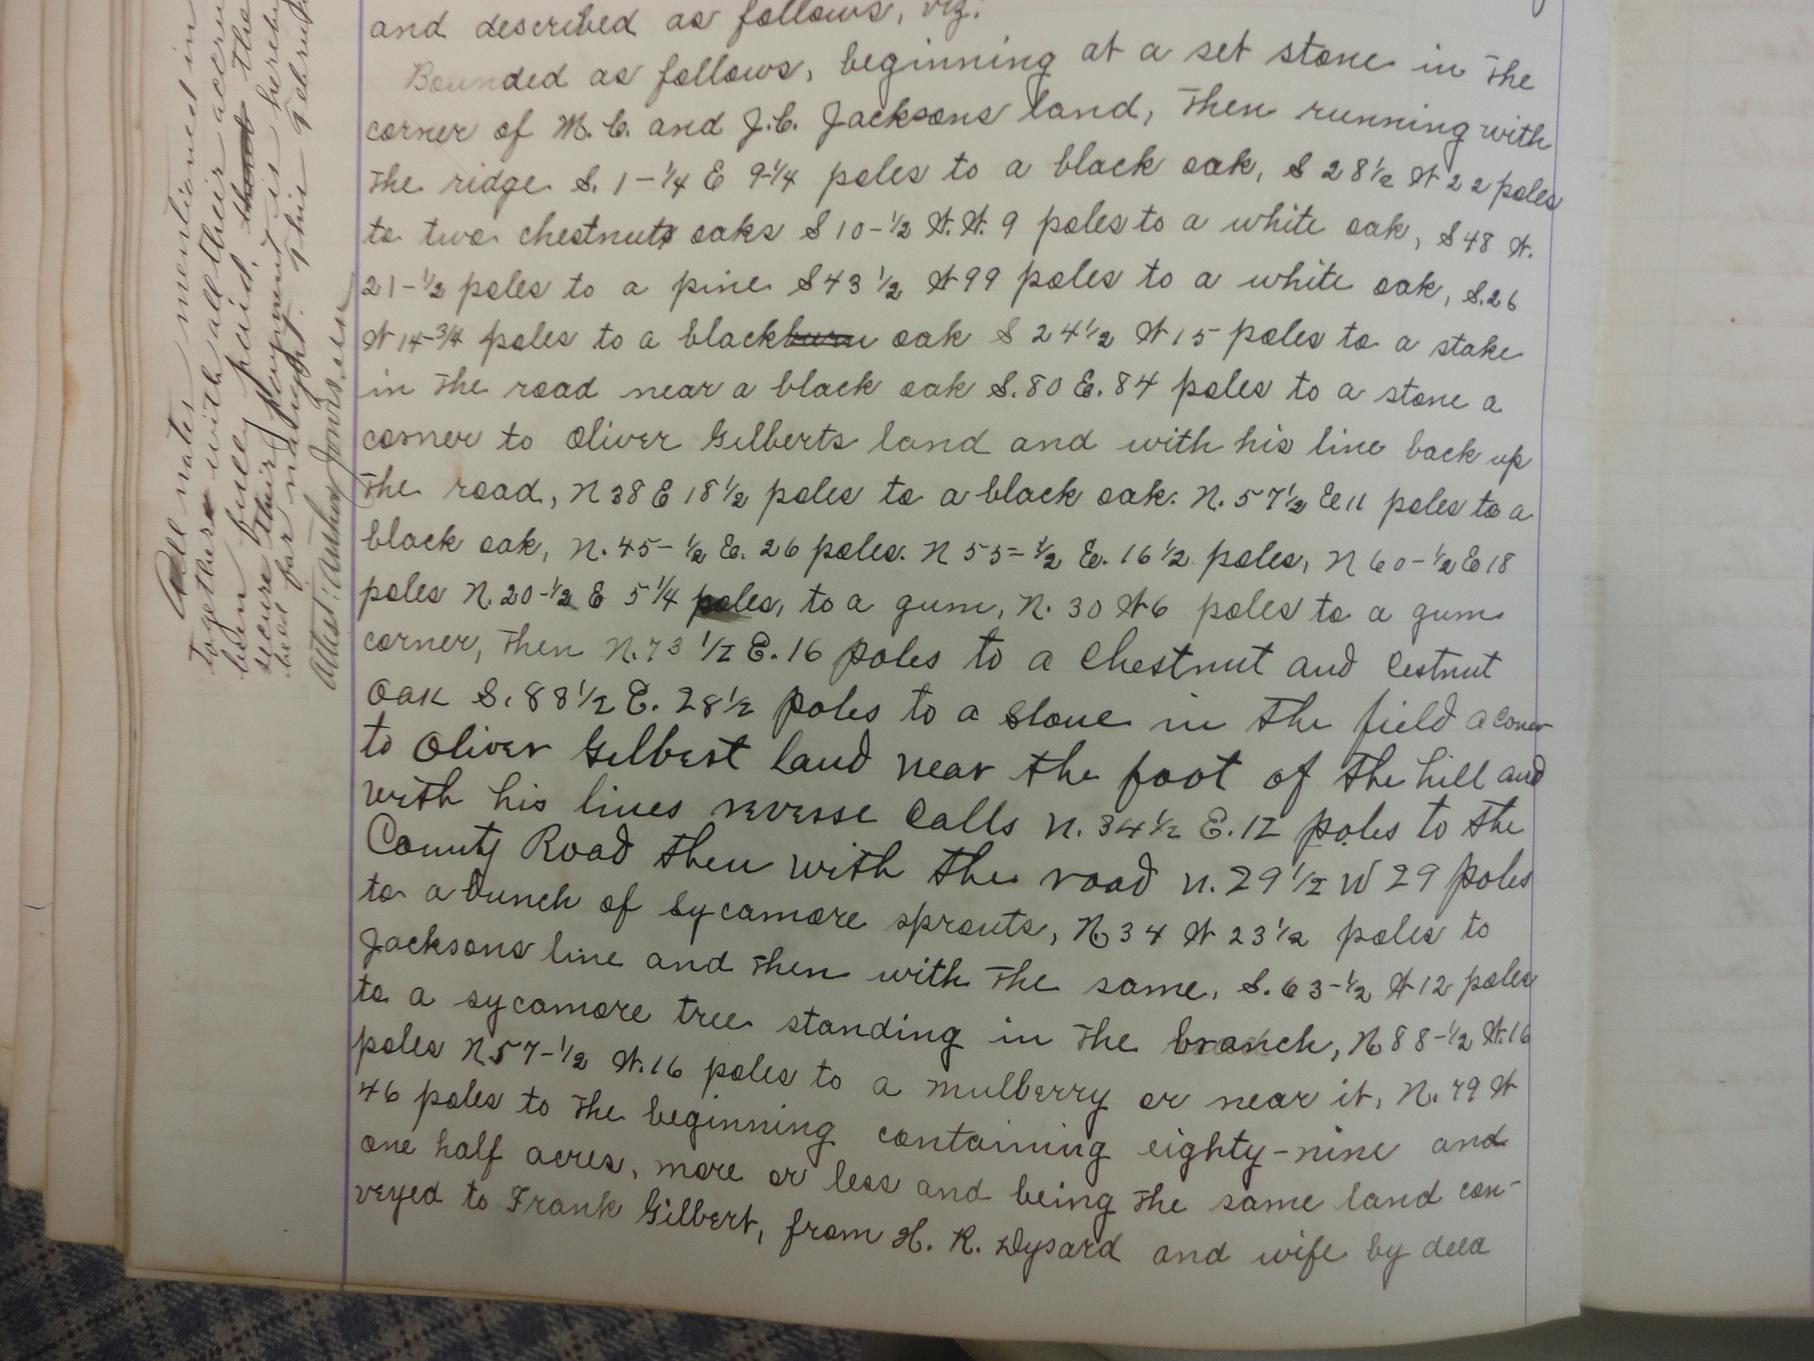 and described as follows, viz:
Bounded as follows, beginning at a set stone in the
corner of M. C. and J. C. Jacksons land, then running with
the ridge S. 1-1/4 E 9-1/4 poles to a black oak, S 28 1/2 W 22 poles
to two chestnut oaks S 10-1/2 W. W. 9 poles to a white oak, S 48 W.
21-1/2 poles to a pine S 43 1/2 W 99 poles to a white oak, S. 26
W 14-3/4 poles to a black oak S 24 1/2 W 15 poles to a stake
in the road near a black oak S. 80 E. 84 poles to a stone a
corner to Oliver Gilberts land and with his line back up
the road, N 38 E 18 1/2 poles to a black oak. N. 57 1/2 E 11 poles to a
black oak, N. 45-1/2 E. 26 poles. N 55-1/2 E. 16 1/2 poles, N 60-1/2 E 18
poles N. 20-1/2 E 5 1/4 poles, to a gum, N. 30 W 6 poles to a gum
corner, then N. 73 1/2 E. 16 poles to a Chestnut and Cestnut
Oak S. 88 1/2 E. 28 1/2 poles to a stone in the field a coner
to Oliver Gilbert land near the foot of the hill and
with his lines reverse Calls N. 34 1/2 E. 12 poles to the
County Road then with the road N. 29 1/2 W 29 poles
to a bunch of sycamore sprouts, N 34 W 23 1/2 poles to
Jacksons line and then with the same, S. 63-1/2 W 12 poles
to a sycamore tree standing in the branch, N 88-1/2 W. 16
poles N 57-1/2 W. 16 poles to a mulberry or near it, N. 79 W
46 poles to the beginning containing eighty-nine and
one half acres, more or less and being the same land con-
veyed to Frank Gilbert, from H. K. Dysard and wife by deed
All notes mentioned in
together with all their accru
been fully paid, the
secure their payment is hereby
held for naught. This Februa
Attest: